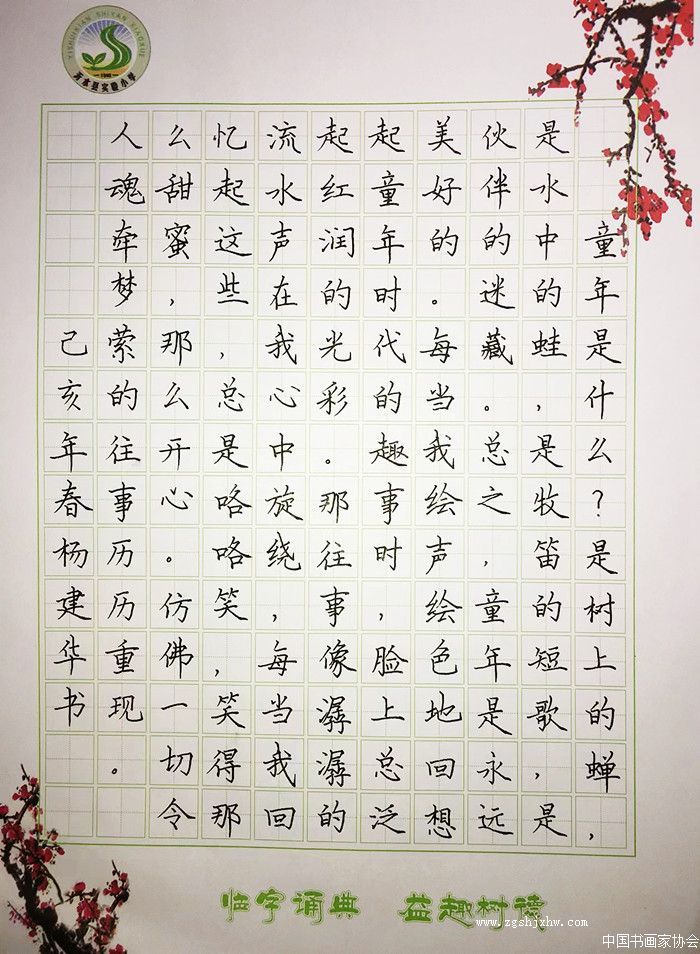 YISHUIXIAN SHIYAN XIAOXUE
沂水县实验小学
童年是什么？是树上的蝉，
是水中的蛙，是牧笛的短歌，是
伙伴的迷藏。总之，童年是永远
美好的。每当我绘声绘色地回想
起童年时代的趣事时，脸上总泛
起红润的光彩。那往事像潺潺的
流水声在我心中旋绕，每当我回
忆起这些，总是咯咯笑，笑得那
么甜蜜，那么开心。仿佛一切令
人魂牵梦萦的往事历历重现。
己亥年春杨建华书
临字诵典 益趣树德
www.zgshjxhw.com
中国书画家协会